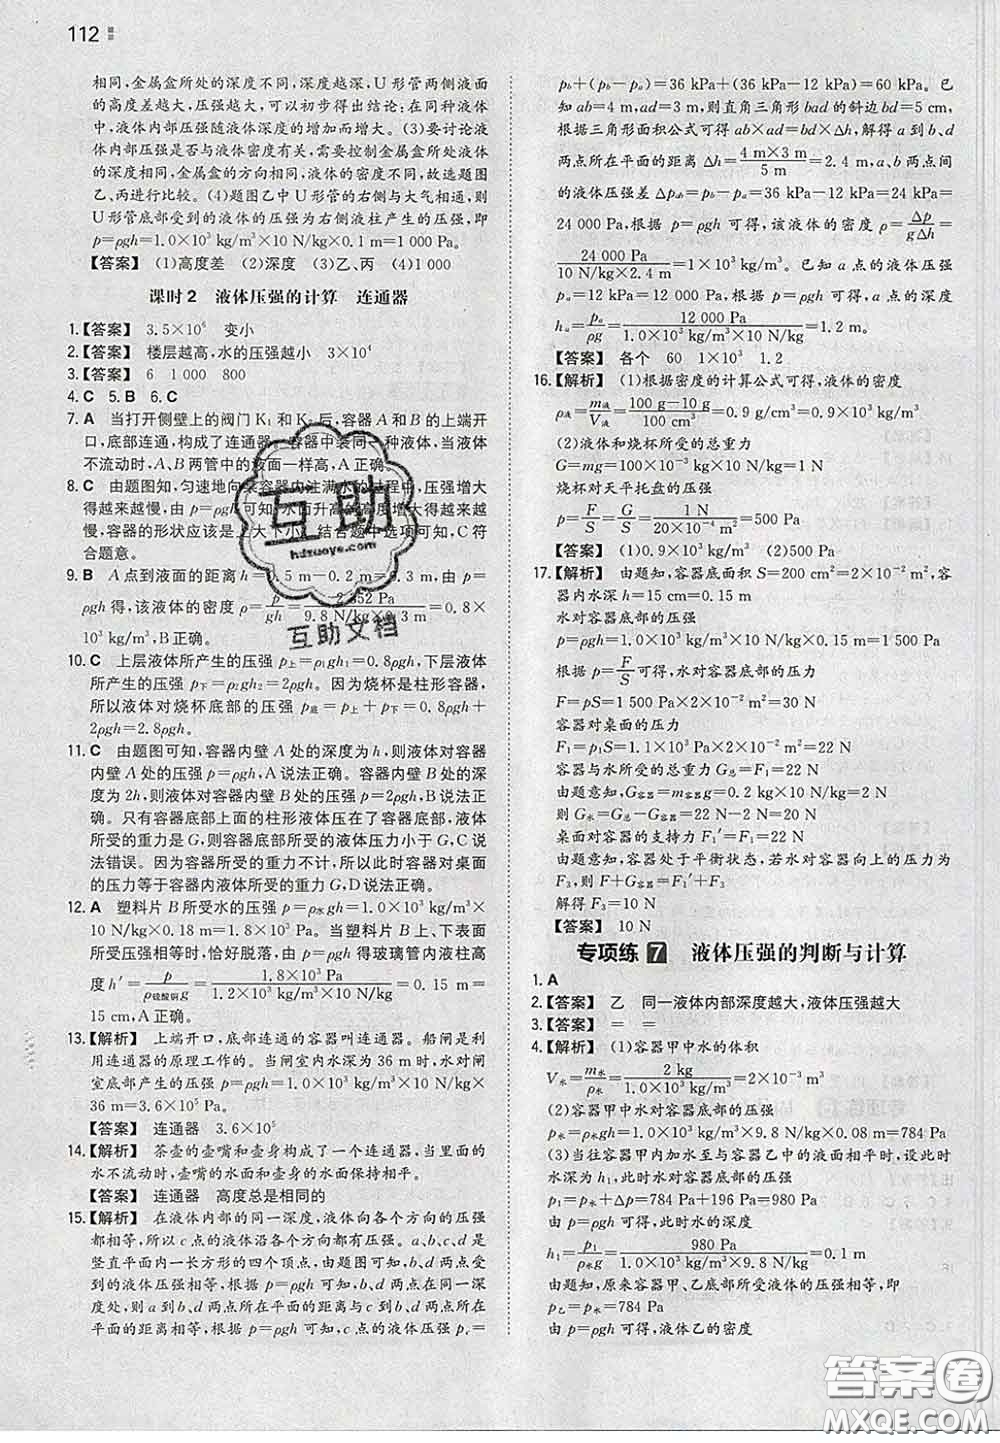 112
相同,金属盒所处的深度不同,深度越深,U形管两侧液面
的高度差越大,压强越大,可以初步得出结论:在同种液体
中,液体内部压强随液体深度的增加而增大。(3)要讨论液
体内部压强是否与液体密度有关,需要控制金属盒所处液体
的深度相同,金属盒的方向相同,液体的密度不同,故选题图
乙、丙进行比较。(4)题图乙中U形管的右侧与大气相通,
U形管底部受到的液体的压强为右侧液柱产生的压强,即
p=ρgh=1.0×10³ kg/m³×10 N/kg×0.1 m=1 000 Pa。
【答案】 (1)高度差 (2)深度 (3)乙、丙 (4)1 000
课时2 液体压强的计算 连通器
1.【答案】 3.5×10⁶ 变小
2.【答案】 楼层越高,水的压强越小 3×10⁴
3.【答案】 6 1 000 800
4. C 5. B 6. C
7. A 当打开侧壁上的阀门K₁和K₂后,容器A和B的上端开
口,底部连通,构成了连通器。容器中装同一种液体,当液体
不流动时,A、B两管中的液面一样高,A正确。
8. C 由题图知,匀速地向某容器内注满水的过程中,压强增大
得越来越慢,由p=ρgh可知,水面升高的高度增大得越来越
慢,容器的形状应该是上大下小。结合题中选项可知,C符
合题意。
9. B A点到液面的距离h=0.5 m-0.2 m=0.3 m,由p=
ρgh得,该液体的密度ρ=p/gh=2 352 Pa/(9.8 N/kg×0.3 m)=0.8×
10³ kg/m³,B正确。
10. C 上层液体所产生的压强p上=ρ₁gh₁=0.8ρgh,下层液体
所产生的压强p下=ρ₂gh₂=2ρgh。因为烧杯是柱形容器,
所以液体对烧杯底部的压强p底=p上+p下=0.8ρgh+
2ρgh=2.8ρgh。
11. C 由题图可知,容器内壁A处的深度为h,则液体对容器
内壁A处的压强p=ρgh,A说法正确。容器内壁B处的深
度为2h,则液体对容器内壁B处的压强p=2ρgh,B说法正
确。只有容器底部上面的柱形液体压在了容器底部,液体
的重力是G,则容器底部所受的液体压力小于G,C说法
错误。因为容器所受的重力不计,所以此时容器对桌面
的压力等于容器内液体所受的重力G,D说法正确。
12. A 塑料片B所受水的压强p=ρ水gh=1.0×10³ kg/m³×
10 N/kg×0.18 m=1.8×10³ Pa。当塑料片B上、下表面所
受压强相等时,恰好脱落,由p=ρgh得玻璃管内液柱高
度h′=p/ρ硫酸铜g=1.8×10³ Pa/(1.2×10³ kg/m³×10 N/kg)=0.15 m=
15 cm,A正确。
13.【解析】 上端开口,底部连通的容器叫连通器。船闸是利
用连通器的原理工作的。当闸室内水深为36 m时,水对闸
室底部产生的压强p=ρgh=1.0×10³ kg/m³×10 N/kg×
36 m=3.6×10⁵ Pa。
【答案】 连通器 3.6×10⁵
14.【解析】 茶壶的壶嘴和壶身构成了一个连通器,当里面的
水不流动时,壶嘴的水面和壶身的水面保持相平。
【答案】 连通器 高度总是相同的
15.【解析】 在液体内部的同一深度,液体向各个方向的压强
都相等,所以c点的液体沿各个方向的压强都相等。a、b、c、d是
竖直平面内一长方形的四个顶点,由题意知,b、d两点所受
到的液体压强相等,根据p=ρgh可得,b、d两点在同一深
度处,则a到b、d两点所在平面的距离与c到b、d两点所
在平面的距离相等,根据p=ρgh可知,c点的液体压强p꜀=
p_b+(p_b-p_a)=36 kPa+(36 kPa-12 kPa)=60 kPa。已
知ab=4 m,ad=3 m,则直角三角形bad的斜边bd=5 m,
根据三角形面积公式可得ab×ad=bd×Δh,解得a到b、d
两点所在平面的距离Δh=(4 m×3 m)/5 m=2.4 m,a、b两点间
的液体压强差Δp_ab=p_b-p_a=36 kPa-12 kPa=24 kPa=
24 000 Pa,根据p=ρgh可得,该液体的密度ρ=Δp/gΔh=
24 000 Pa/(10 N/kg×2.4 m)=1×10³ kg/m³。已知a点的液体压强
p_a=12 kPa=12 000 Pa,根据p=ρgh可得,a点的深度
h_a=p_a/ρg=12 000 Pa/(1.0×10³ kg/m³×10 N/kg)=1.2 m。
【答案】 各个 60 1×10³ 1.2
16.【解析】 (1)根据密度的计算公式可得,液体的密度
ρ液=m液/V液=(100 g-10 g)/100 cm³=0.9 g/cm³=0.9×10³ kg/m³
(2)液体和烧杯所受的总重力
G=mg=100×10⁻³ kg×10 N/kg=1 N
烧杯对天平托盘的压强
p=F/S=G/S=1 N/(20×10⁻⁴ m²)=500 Pa
【答案】 (1)0.9×10³ kg/m³ (2)500 Pa
17.【解析】 由题知,容器底面积S=200 cm²=2×10⁻² m²,容
器内水深h=15 cm=0.15 m
水对容器底部的压强
p=ρgh=1.0×10³ kg/m³×10 N/kg×0.15 m=1 500 Pa
根据p=F/S可得,水对容器底部的压力
F=pS=1 500 Pa×2×10⁻² m²=30 N
容器对桌面的压力
F₁=p₁S=1.1×10³ Pa×2×10⁻² m²=22 N
容器与水所受的总重力G总=F₁=22 N
由题意知,G容器=m容器g=0.2 kg×10 N/kg=2 N
则G水=G总-G容器=22 N-2 N=20 N
桌面对容器的支持力F₁′=F₁=22 N
由题意知,容器处于平衡状态,若水对容器向上的压力为
F₃,则F+G容器=F₁′+F₃
解得F₃=10 N
【答案】 10 N
专项练7 液体压强的判断与计算
1. A
2.【答案】 乙 同一液体内部深度越大,液体压强越大
3.【答案】 = =
4.【解析】 (1)容器甲中水的体积
V水=m水/ρ水=2 kg/(1.0×10³ kg/m³)=2×10⁻³ m³
(2)容器甲中水对容器底部的压强
p水=ρ水gh=1.0×10³ kg/m³×9.8 N/kg×0.08 m=784 Pa
(3)当往容器甲内加水至与容器乙中的液面相平时,设此时
水深为h₁,此时水对容器底部的压强
p₁=p水+Δp=784 Pa+196 Pa=980 Pa
由p=ρgh可得,此时水的深度
h₁=p₁/ρ水g=980 Pa/(1.0×10³ kg/m³×9.8 N/kg)=0.1 m
由题意知,原来容器甲、乙底部所受液体的压强相等,即
p乙=p水=784 Pa
由p=ρgh可得,液体乙的密度
互助
hdzuoye.com
互助文档
答案圈
MXQE.COM